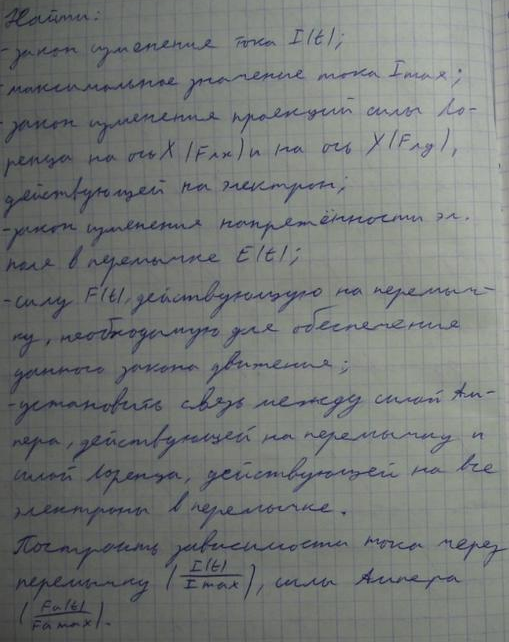 Найти:
- закон изменения тока I(t);
- максимальное значение тока Imax;
- закон изменения проекций силы Ло-
ренца на ось X (Fлx) и на ось Y (Fлy),
действующей на электрон;
- закон изменения напряжённости эл.
поля в перемычке E(t);
- силу F(t), действующую на перемыч-
ку, необходимую для обеспечения
данного закона движения;
- установить связь между силой Ам-
пера, действующей на перемычку и
силой Лоренца, действующей на все
электроны в перемычке.
Построить зависимости тока через
перемычку (I(t)/Imax), силы Ампера
(Fа(t)/Fаmax).